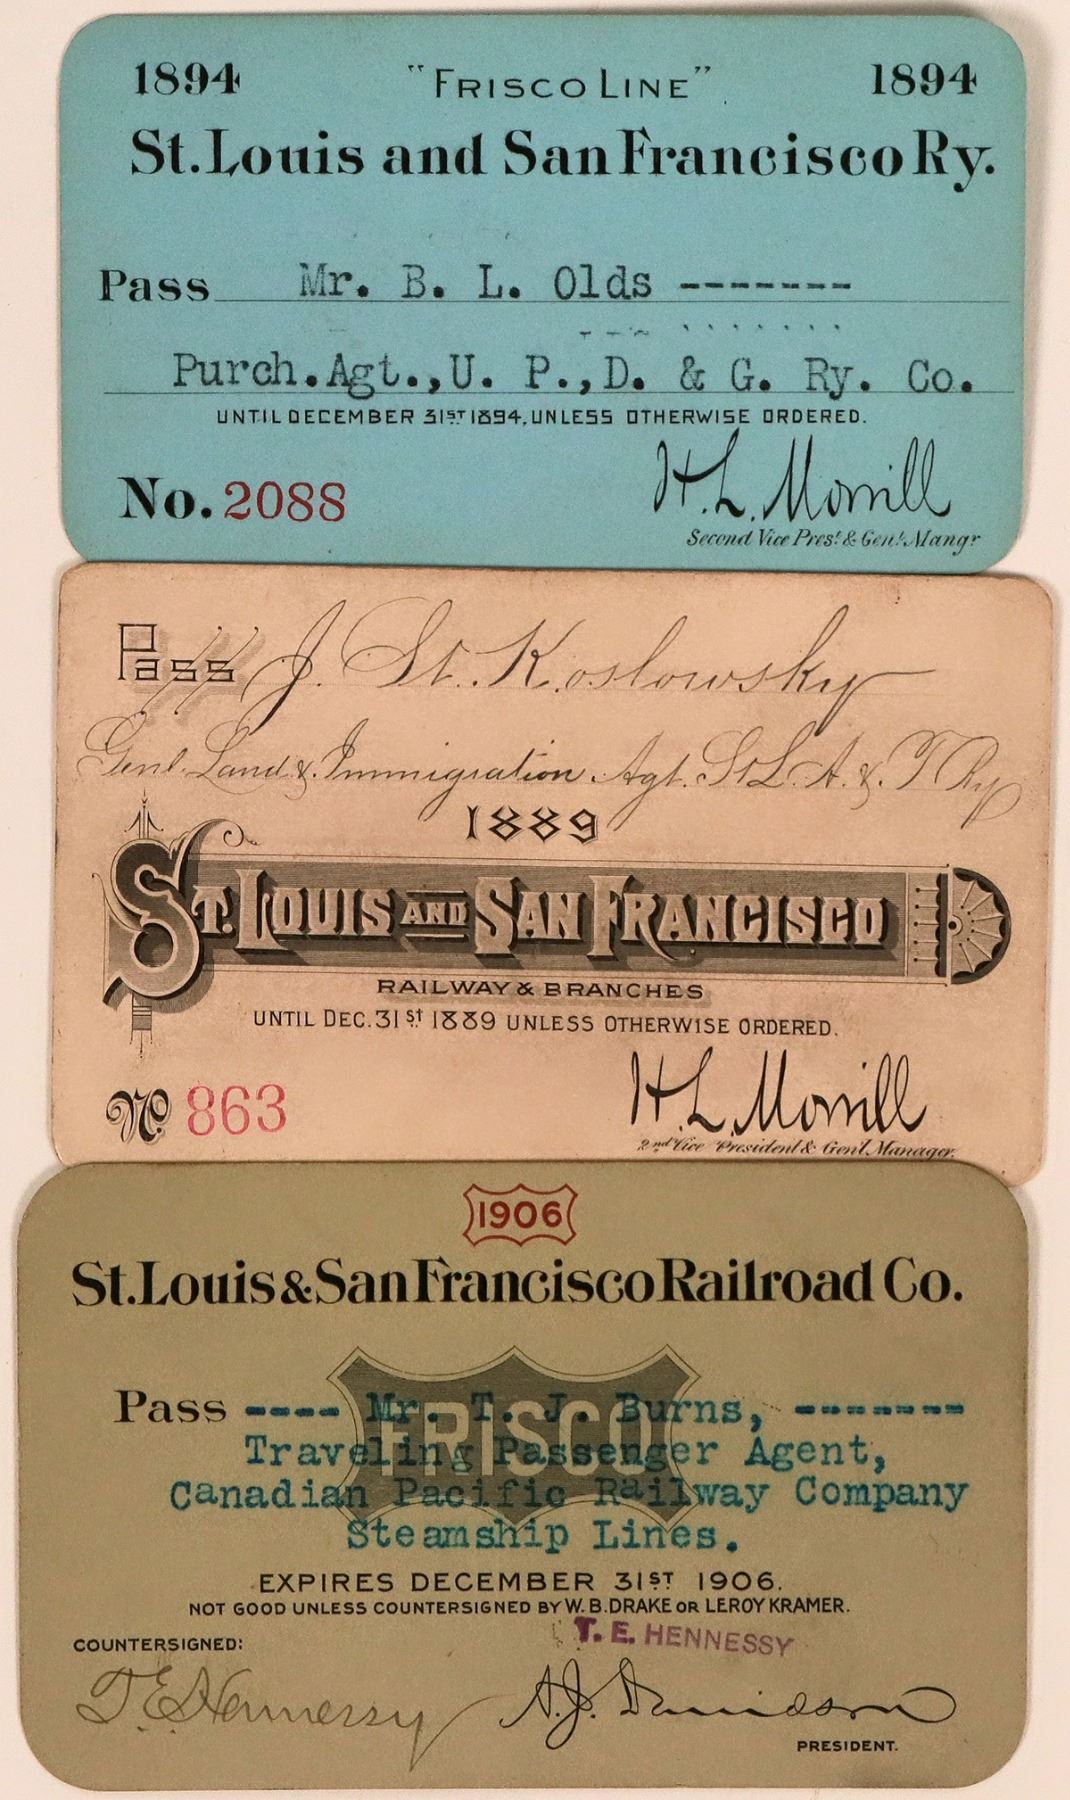 1894 "FRISCO LINE" 1894
St. Louis and San Francisco Ry.
Pass Mr. B. L. Olds -------
Purch. Agt., U. P., D. & G. Ry. Co.
UNTIL DECEMBER 31ST 1894, UNLESS OTHERWISE ORDERED.
No. 2088
H. L. Morrill
Second Vice Prest. & Genl. Mangr
Pass J. St. Koslowsky
Genl. Land & Immigration Agt. St L. A. & T Ry
1889
ST. LOUIS AND SAN FRANCISCO
RAILWAY & BRANCHES
UNTIL DEC. 31st 1889 UNLESS OTHERWISE ORDERED.
No. 863
H. L. Morrill
2nd Vice President & Gen'l. Manager.
1906
St. Louis & San Francisco Railroad Co.
FRISCO
Pass ---- Mr. T. J. Burns, -------
Traveling Passenger Agent,
Canadian Pacific Railway Company
Steamship Lines.
EXPIRES DECEMBER 31ST 1906.
NOT GOOD UNLESS COUNTERSIGNED BY W. B. DRAKE OR LEROY KRAMER.
T. E. HENNESSY
COUNTERSIGNED:
T. E. Hennessy
A. J. Davidson
PRESIDENT.